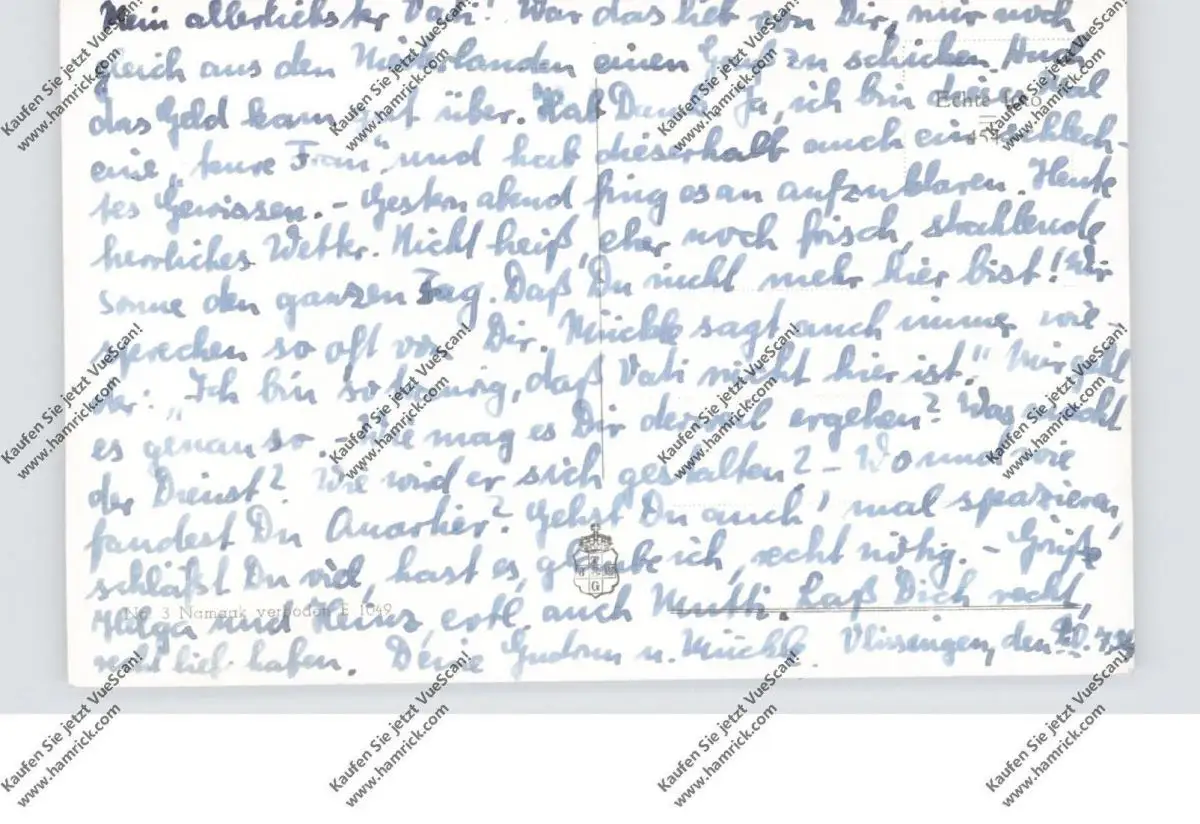 Mein allerliebster Vati! War das lieb von Dir, mir noch
gleich aus den Niederlanden einen Gruß zu schicken. Auch
das Geld kam gut über. Hab Dank. Ja, ich bin
Echte Foto
eine „teure Frau" und hab dieserhalb auch ein schlech-
tes Gewissen. – Gestern abend fing es an aufzuklaren. Heute
herrliches Wetter. Nicht heiß, eher noch frisch, strahlende
Sonne den ganzen Tag. Daß Du nicht mehr hier bist! Wir
sprechen so oft von Dir. Mückle sagt auch immer wie-
der: „Ich bin so traurig, daß Vati nicht hier ist." Mir geht
es genau so. – Wie mag es Dir derweil ergehen? Was macht
der Dienst? Wie wird er sich gestalten? – Wo und wie
fandest Du Quartier? Gehst Du auch mal spazieren,
schläfst Du viel, hast es, glaube ich, recht nötig. – Grüße
No 3 Namaak verboden E 1049
Helga und Heinz, evtl. auch Mutti. Laß Dich recht,
recht lieb haben. Deine Gudrun u. Mückle. Vlissingen, den
Kaufen Sie jetzt VueScan!
www.hamrick.com